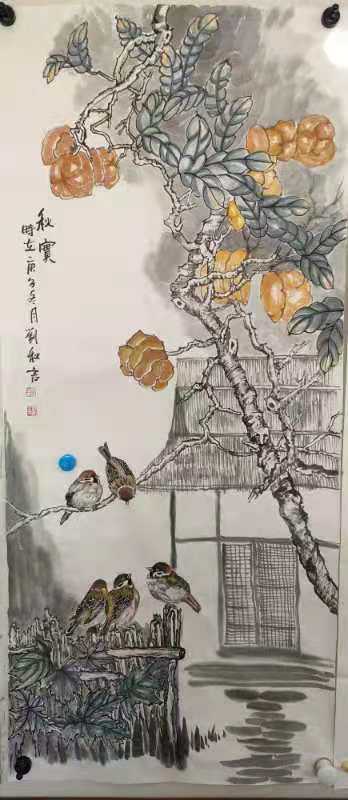 秋實
時在庚子冬月劉秋言